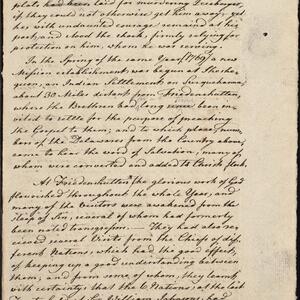 plots had been laid for murdering Zeisberger,
if they could not otherwise get him away, yet
he with undaunted courage remained at his
post, and stood the shock, firmly relying for
protection on him, whom he was serving.
In the Spring of the same Year (1769) a new
Mission establishment was begun at Sheshe-
quon, an Indian Settlement on Susquehanna,
about 30 Miles distant from Friedenshütten,
where the Brethren had long since been in-
vited to settle for the purpose of preaching
the Gospel to them; and to which place, num-
bers of the Delawares from the Country above,
came to hear the word of Salvation, many of
whom were converted and added to Christs flock.
At Friedenshütten the glorious work of God
flourished throughout the whole Year, and
many of the Visitors were awakened from the
sleep of Sin, several of whom had formerly
been noted transgressors. — They had also re-
ceived several Visits from the Chiefs of dif-
ferent Nations which had the good effect,
of keeping up a good understanding between
them, and from some of whom, they learnt
with certainty, that the 6 Nations, at the last
Treaty held by Sir William Johnson, had